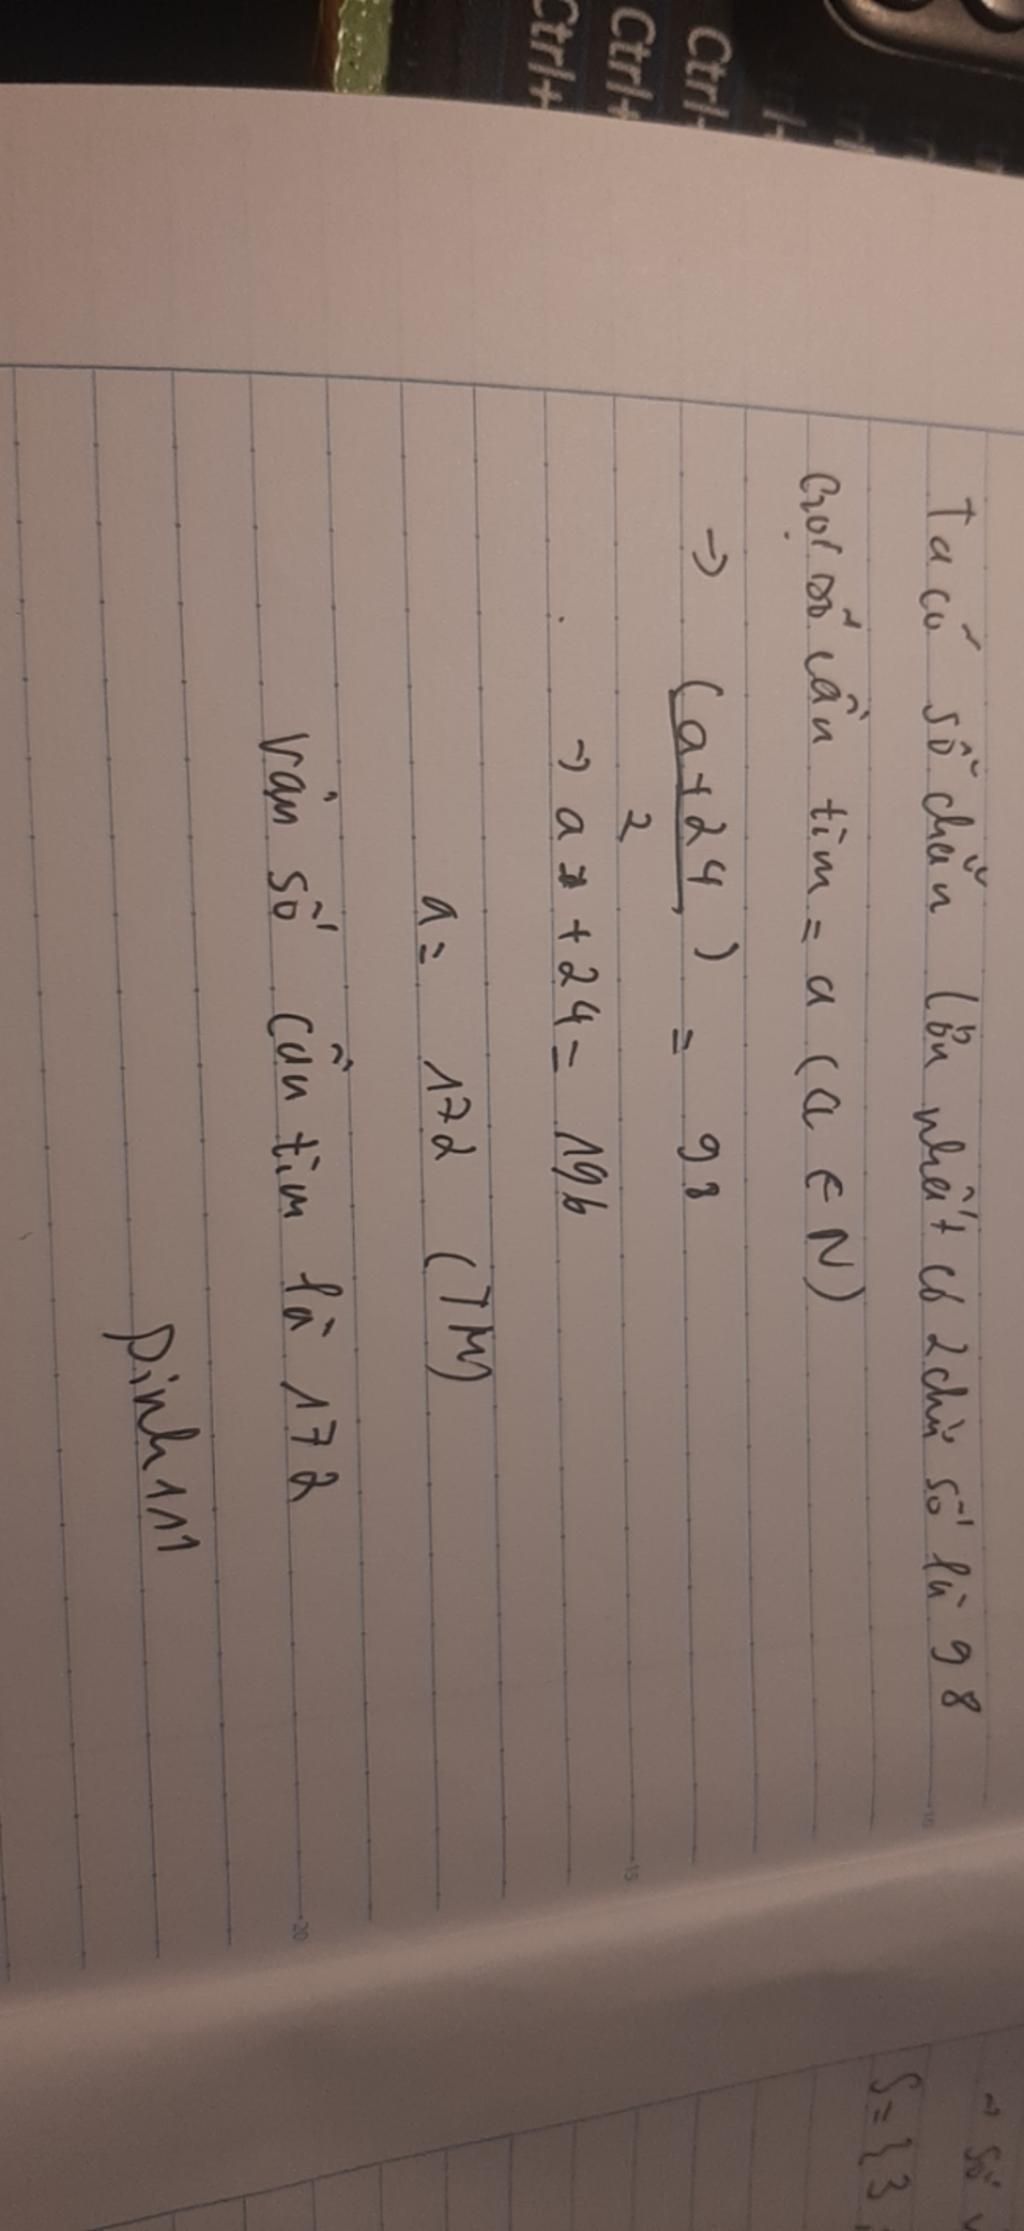 Ctrl+
Ctrl+
Ctrl+
Ta có số chẵn lớn nhất có 2 chữ số là 98
Gọi số cần tìm = a (a ∈ N)
→ (a+24) = 98
2
→ a + 24 = 196
a = 172 (TM)
Vậy số cần tìm là 172
Dinh111
→ Số
S = {3